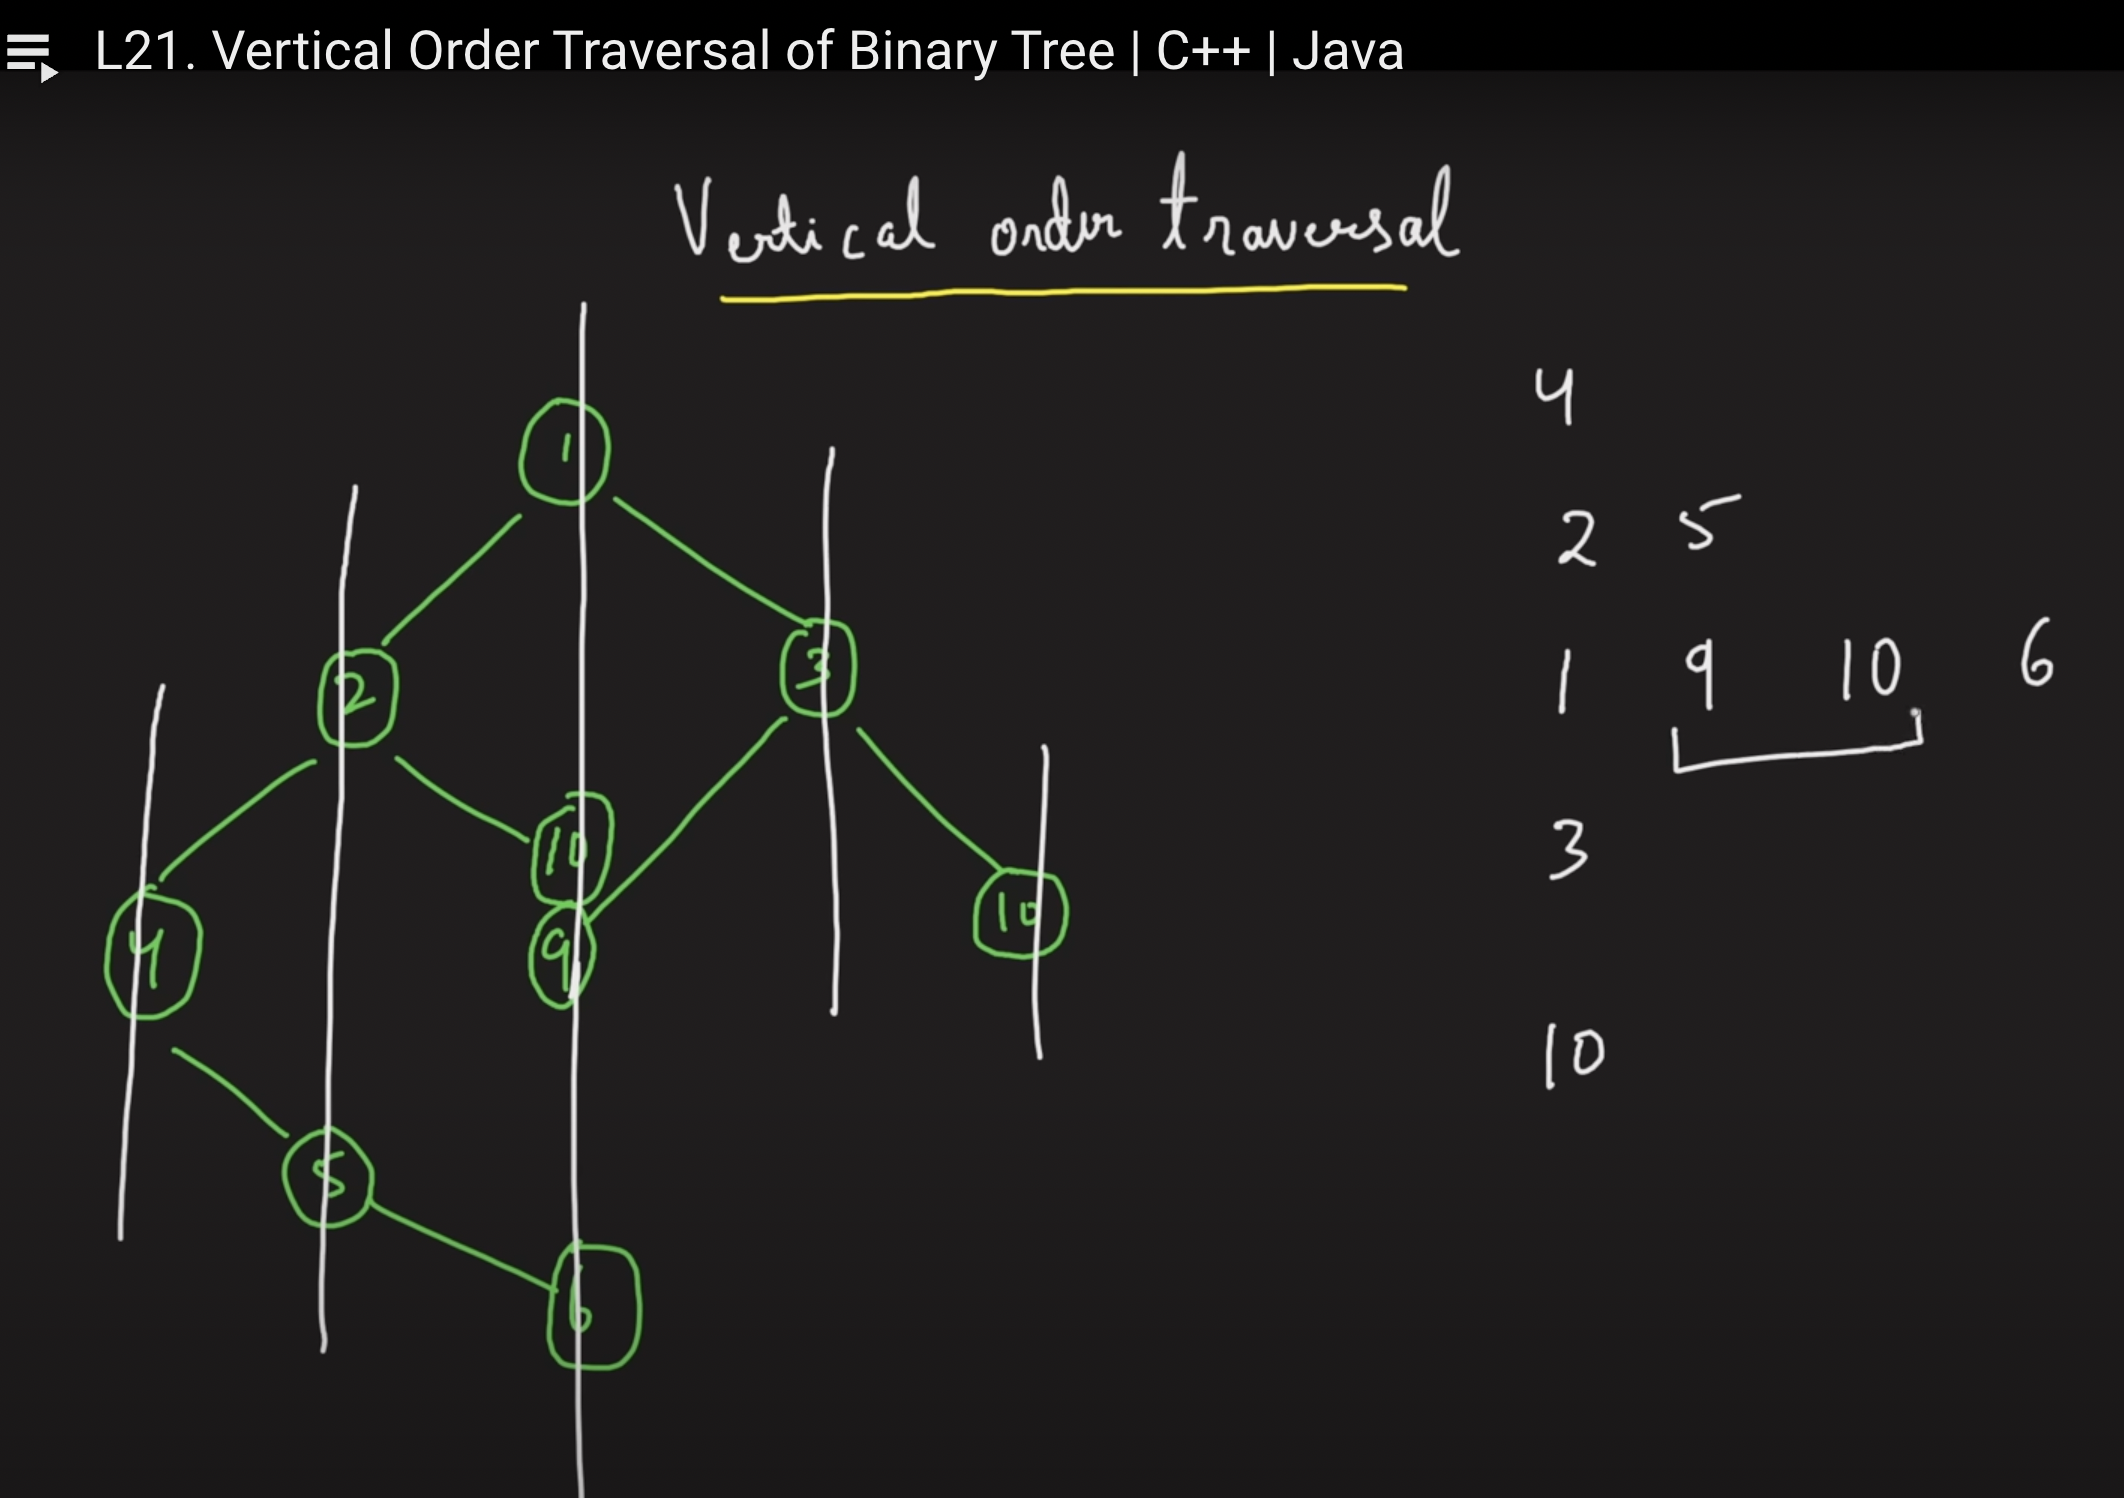 L21. Vertical Order Traversal of Binary Tree | C++ | Java
Vertical order traversal
1
2
3
4
10
9
10
5
6
4
2 5
1 9 10 6
3
10